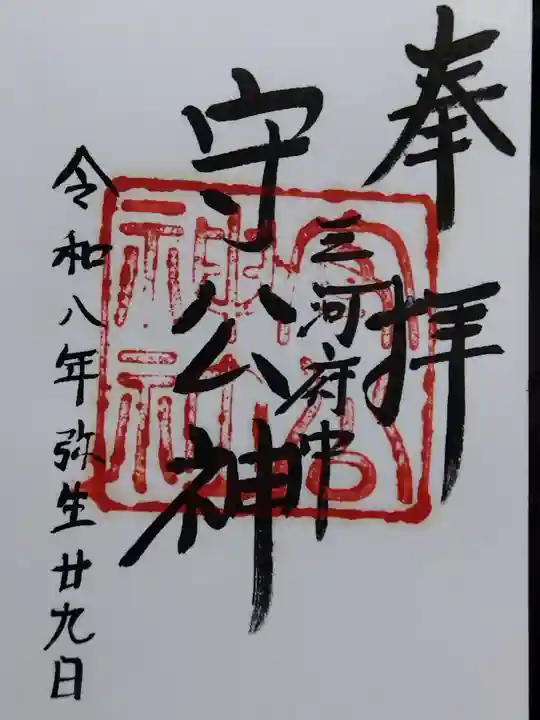 奉拝
三河府中
守公神
令和八年弥生廿九日
守公神社